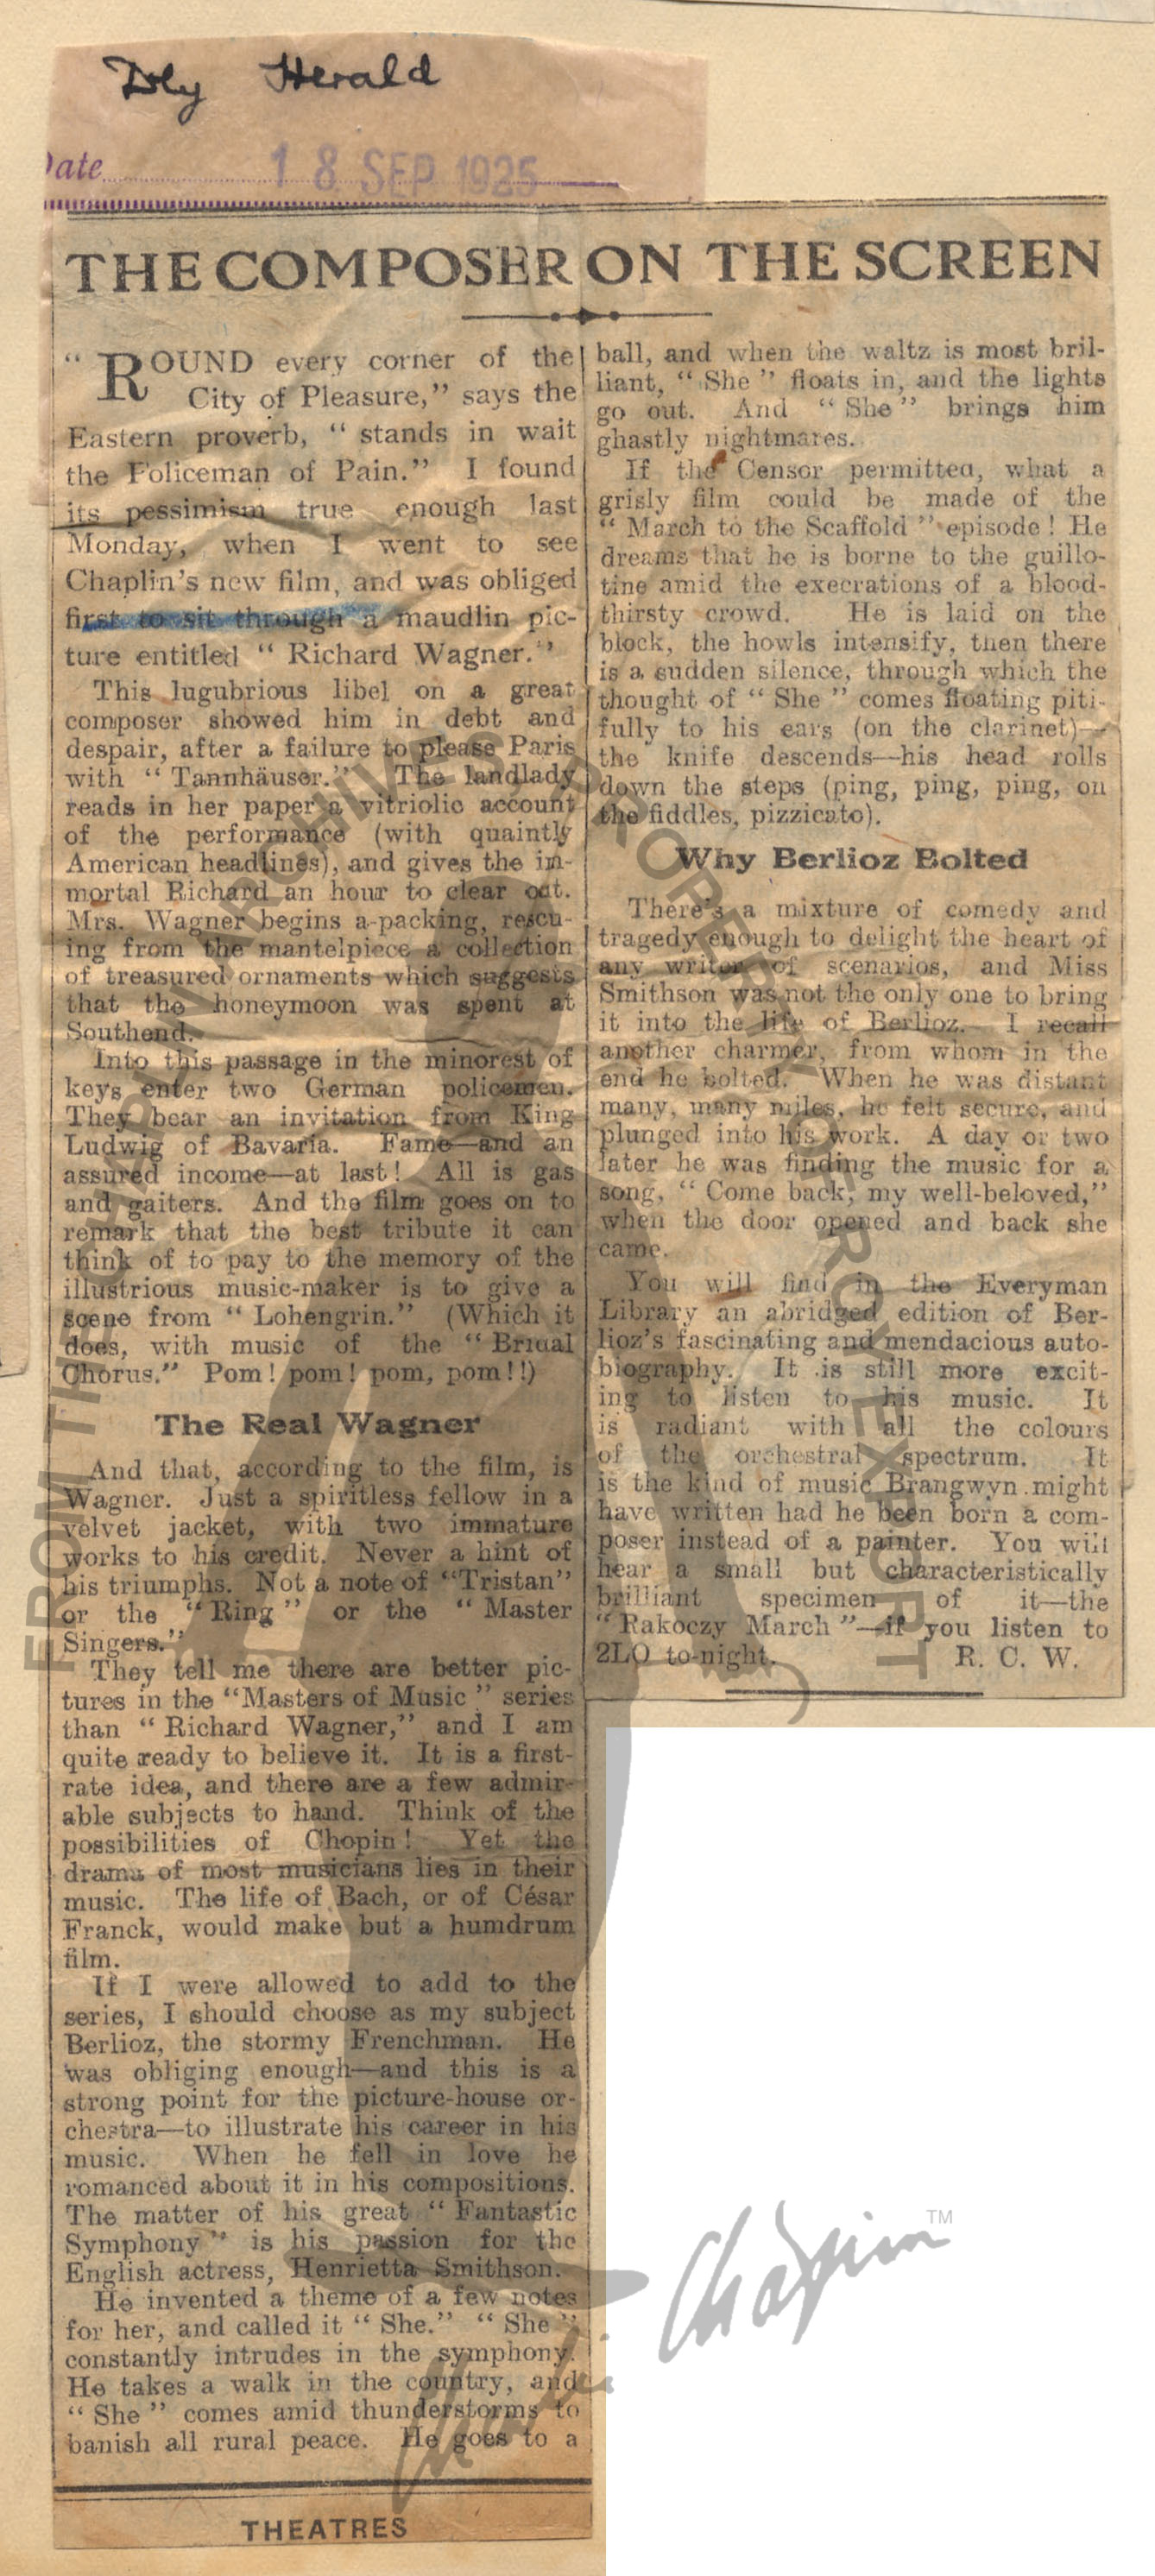 Dly Herald
Date
18 SEP 1925
THE COMPOSER ON THE SCREEN
“ ROUND every corner of the
City of Pleasure,” says the
Eastern proverb, “ stands in wait
the Policeman of Pain.” I found
its pessimism true enough last
Monday, when I went to see
Chaplin’s new film, and was obliged
first to sit through a maudlin pic-
ture entitled “ Richard Wagner.”
This lugubrious libel on a great
composer showed him in debt and
despair, after a failure to please Paris
with “ Tannhäuser.” The landlady
reads in her paper a vitriolic account
of the performance (with quaintly
American headlines), and gives the im-
mortal Richard an hour to clear out.
Mrs. Wagner begins a-packing, rescu-
ing from the mantelpiece a collection
of treasured ornaments which suggests
that the honeymoon was spent at
Southend.
Into this passage in the minorest of
keys enter two German policemen.
They bear an invitation from King
Ludwig of Bavaria. Fame—and an
assured income—at last! All is gas
and gaiters. And the film goes on to
remark that the best tribute it can
think of to pay to the memory of the
illustrious music-maker is to give a
scene from “ Lohengrin.” (Which it
does, with music of the “ Bridal
Chorus.” Pom! pom! pom, pom!!)
The Real Wagner
And that, according to the film, is
Wagner. Just a spiritless fellow in a
velvet jacket, with two immature
works to his credit. Never a hint of
his triumphs. Not a note of “Tristan”
or the “ Ring ” or the “ Master
Singers.”
They tell me there are better pic-
tures in the “Masters of Music ” series
than “ Richard Wagner,” and I am
quite ready to believe it. It is a first-
rate idea, and there are a few admir-
able subjects to hand. Think of the
possibilities of Chopin! Yet the
drama of most musicians lies in their
music. The life of Bach, or of César
Franck, would make but a humdrum
film.
If I were allowed to add to the
series, I should choose as my subject
Berlioz, the stormy Frenchman. He
was obliging enough—and this is a
strong point for the picture-house or-
chestra—to illustrate his career in his
music. When he fell in love he
romanced about it in his compositions.
The matter of his great “ Fantastic
Symphony ” is his passion for the
English actress, Henrietta Smithson.
He invented a theme of a few notes
for her, and called it “ She.” “ She ”
constantly intrudes in the symphony.
He takes a walk in the country, and
“ She ” comes amid thunderstorms to
banish all rural peace. He goes to a
THEATRES
ball, and when the waltz is most bril-
liant, “ She ” floats in, and the lights
go out. And “ She ” brings him
ghastly nightmares.
If the Censor permitted, what a
grisly film could be made of the
“ March to the Scaffold ” episode! He
dreams that he is borne to the guillo-
tine amid the execrations of a blood-
thirsty crowd. He is laid on the
block, the howls intensify, then there
is a sudden silence, through which the
thought of “ She ” comes floating piti-
fully to his ears (on the clarinet)—
the knife descends—his head rolls
down the steps (ping, ping, ping, on
the fiddles, pizzicato).
Why Berlioz Bolted
There’s a mixture of comedy and
tragedy enough to delight the heart of
any writer of scenarios, and Miss
Smithson was not the only one to bring
it into the life of Berlioz. I recall
another charmer, from whom in the
end he bolted. When he was distant
many, many miles, he felt secure, and
plunged into his work. A day or two
later he was finding the music for a
song, “ Come back, my well-beloved,”
when the door opened and back she
came.
You will find in the Everyman
Library an abridged edition of Ber-
lioz’s fascinating and mendacious auto-
biography. It is still more excit-
ing to listen to his music. It
is radiant with all the colours
of the orchestral spectrum. It
is the kind of music Brangwyn might
have written had he been born a com-
poser instead of a painter. You will
hear a small but characteristically
brilliant specimen of it—the
“ Rakoczy March ”—if you listen to
2LO to-night. R. C. W.
FROM THE CHAPLIN ARCHIVES, PROPERTY OF ROY EXPORT
Charlie Chaplin
TM